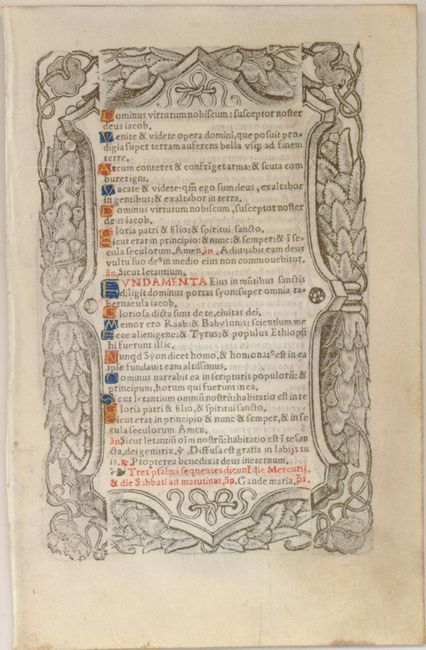 Dominus virtutum nobiscum: susceptor noster
deus iacob.
Venite & videte opera domini, que posuit pro
digia super terram auferens bella vsq3 ad finem
terre.
Arcum conteret & confriget arma: & scuta com
buret igni.
Vacate & videte: qm̄ ego sum deus, exaltabor
in gentibus: & exaltabor in terra.
Dominus virtutum nobiscum, susceptor noster
deus iacob.
Gloria patri & filio: & spiritui sancto.
Sicut erat in principio: & nunc: & semper: & ī se
cula seculorum, Amen, añ. Adiuvabit eam deus
vultu suo de⁹ in medio eius non commouebitur.
añ. Sicut letantium.
FVNDAMENTA Eius in mōtibus sanctis
diligit dominus portas syon: super omnia ta
bernacula iacob.
Gloriosa dicta sunt de te, ciuitas dei.
Memor ero Raab: & Babylonis: scientium me
Ecce alienigene: & Tyrus: & populus Ethiopū
hi fuerunt illic.
Nunqd Syon dicet homo, & homo nat⁹ est in ea
ipse fundauit eam altissimus.
Dominus narrabit ea in scripturis populorū: &
principum, horum qui fuerunt in ea.
Sicut letantium omniū nostrū: habitatio est in te
Gloria patri & filio, & spiritui sancto.
Sicut erat in principio & nunc & semper, & in se
cula seculorum Amen.
añ Sicut letantiū oīm nostrū: habitatio est ī te san
cta, dei genitrix, ℣. Diffusa est gratia in labijs tu
is. ℟. Propterea benedixit deus in eternum.
Tres psalmi sequentes dicunt̄ die Mercurij,
& die Sabbati ad matutinas, añ. Gaude maria, ps.